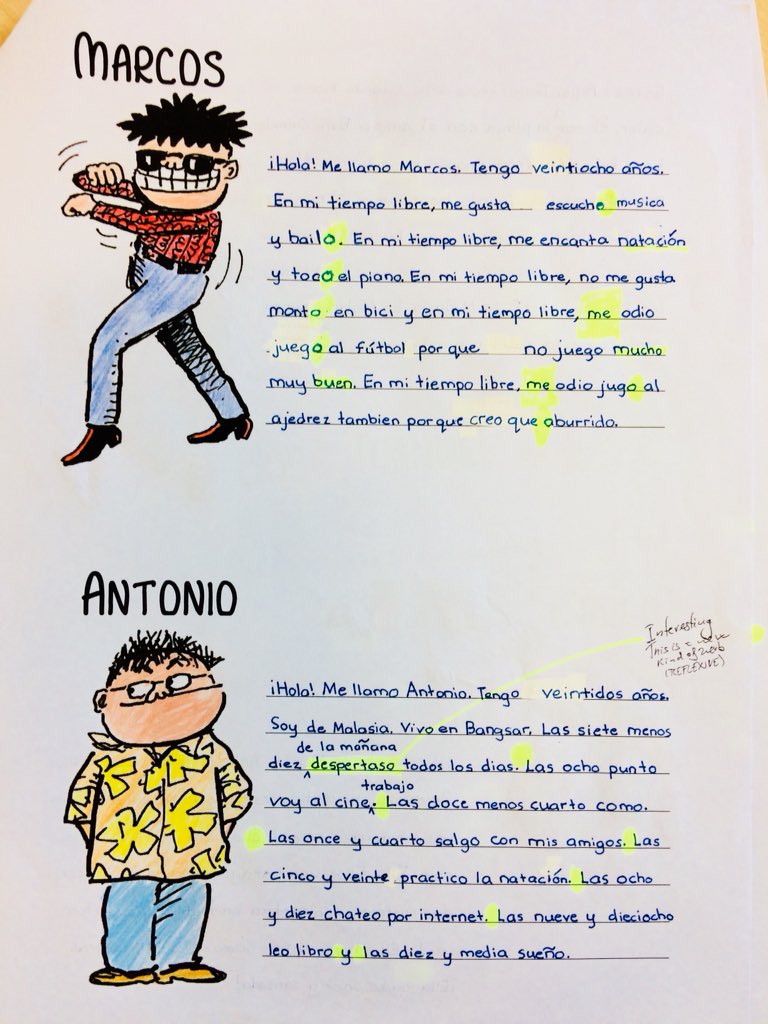 MARCOS
¡Hola! Me llamo Marcos. Tengo veintiocho años.
En mi tiempo libre, me gusta escucho musica
y bailo. En mi tiempo libre, me encanta natación
y toco el piano. En mi tiempo libre, no me gusta
monto en bici y en mi tiempo libre, me odio
juego al fútbol por que no juego mucho
muy buen. En mi tiempo libre, me odio jugo al
ajedrez tambien porque creo que aburrido.
ANTONIO
Interesting
This is a
kind of verb
(REFLEXIVE)
¡Hola! Me llamo Antonio. Tengo veintidos años.
Soy de Malasia. Vivo en Bangsar. Las siete menos
de la mañana
diez despertaso todos los dias. Las ocho punto
trabajo
voy al cine. Las doce menos cuarto como.
Las once y cuarto salgo con mis amigos. Las
cinco y veinte practico la natación. Las ocho
y diez chateo por internet. Las nueve y dieciocho
leo libro y las diez y media sueño.